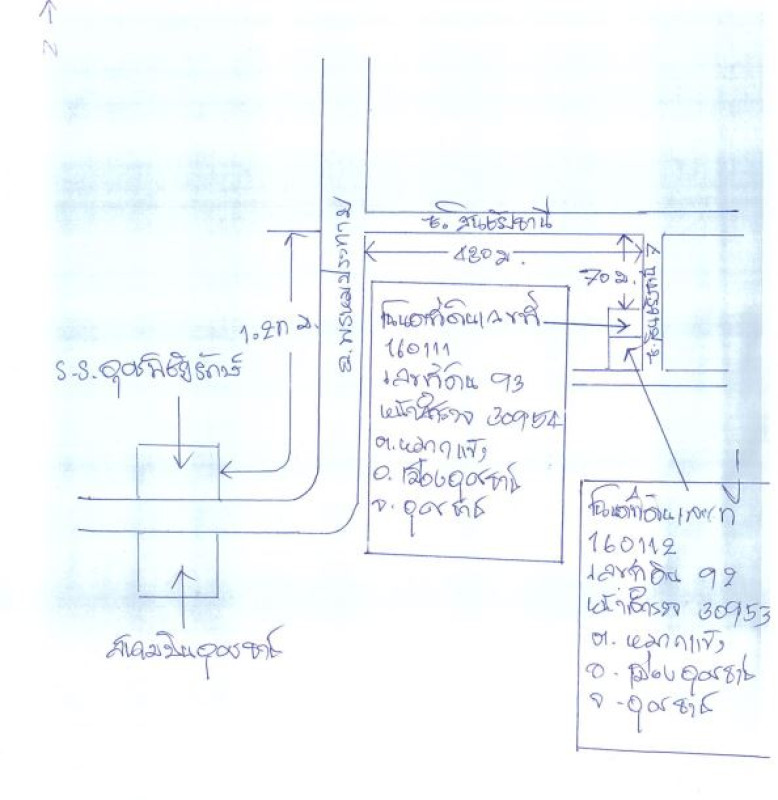 N
ถ.พรหมประกาย
480 ม.
70 ม.
1.2 ก ม.
โฉนดที่ดินเลขที่
160111
เลขที่ดิน 93
หน้าสำรวจ 30954
ต.หมากแข้ง
อ.เมืองอุดรธานี
จ.อุดรธานี
ร.ร.อุดรพิชัยรักษ์
สนามบินอุดรธานี
โฉนดที่ดินเลขที่
160112
เลขที่ดิน 92
หน้าสำรวจ 30953
ต.หมากแข้ง
อ.เมืองอุดรธานี
จ.อุดรธานี